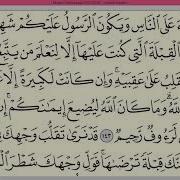 ءَ عَلَى ٱلنَّاسِ وَيَكُونَ ٱلرَّسُولُ عَلَيْكُمْ شَهِ
ٱلْقِبْلَةَ ٱلَّتِى كُنتَ عَلَيْهَآ إِلَّا لِنَعْلَمَ مَن يَتَّبِ
قَلِبُ عَلَىٰ عَقِبَيْهِ وَإِن كَانَتْ لَكَبِيرَةً إِلَّا
ٱللَّهُ وَمَا كَانَ ٱللَّهُ لِيُضِيعَ إِيمَٰنَكُمْ
لَرَءُوفٌ رَّحِيمٌ ١٤٣ قَدْ نَرَىٰ تَقَلُّبَ وَجْهِكَ
نَّكَ قِبْلَةً تَرْضَىٰهَا فَوَلِّ وَجْهَكَ شَطْرَ